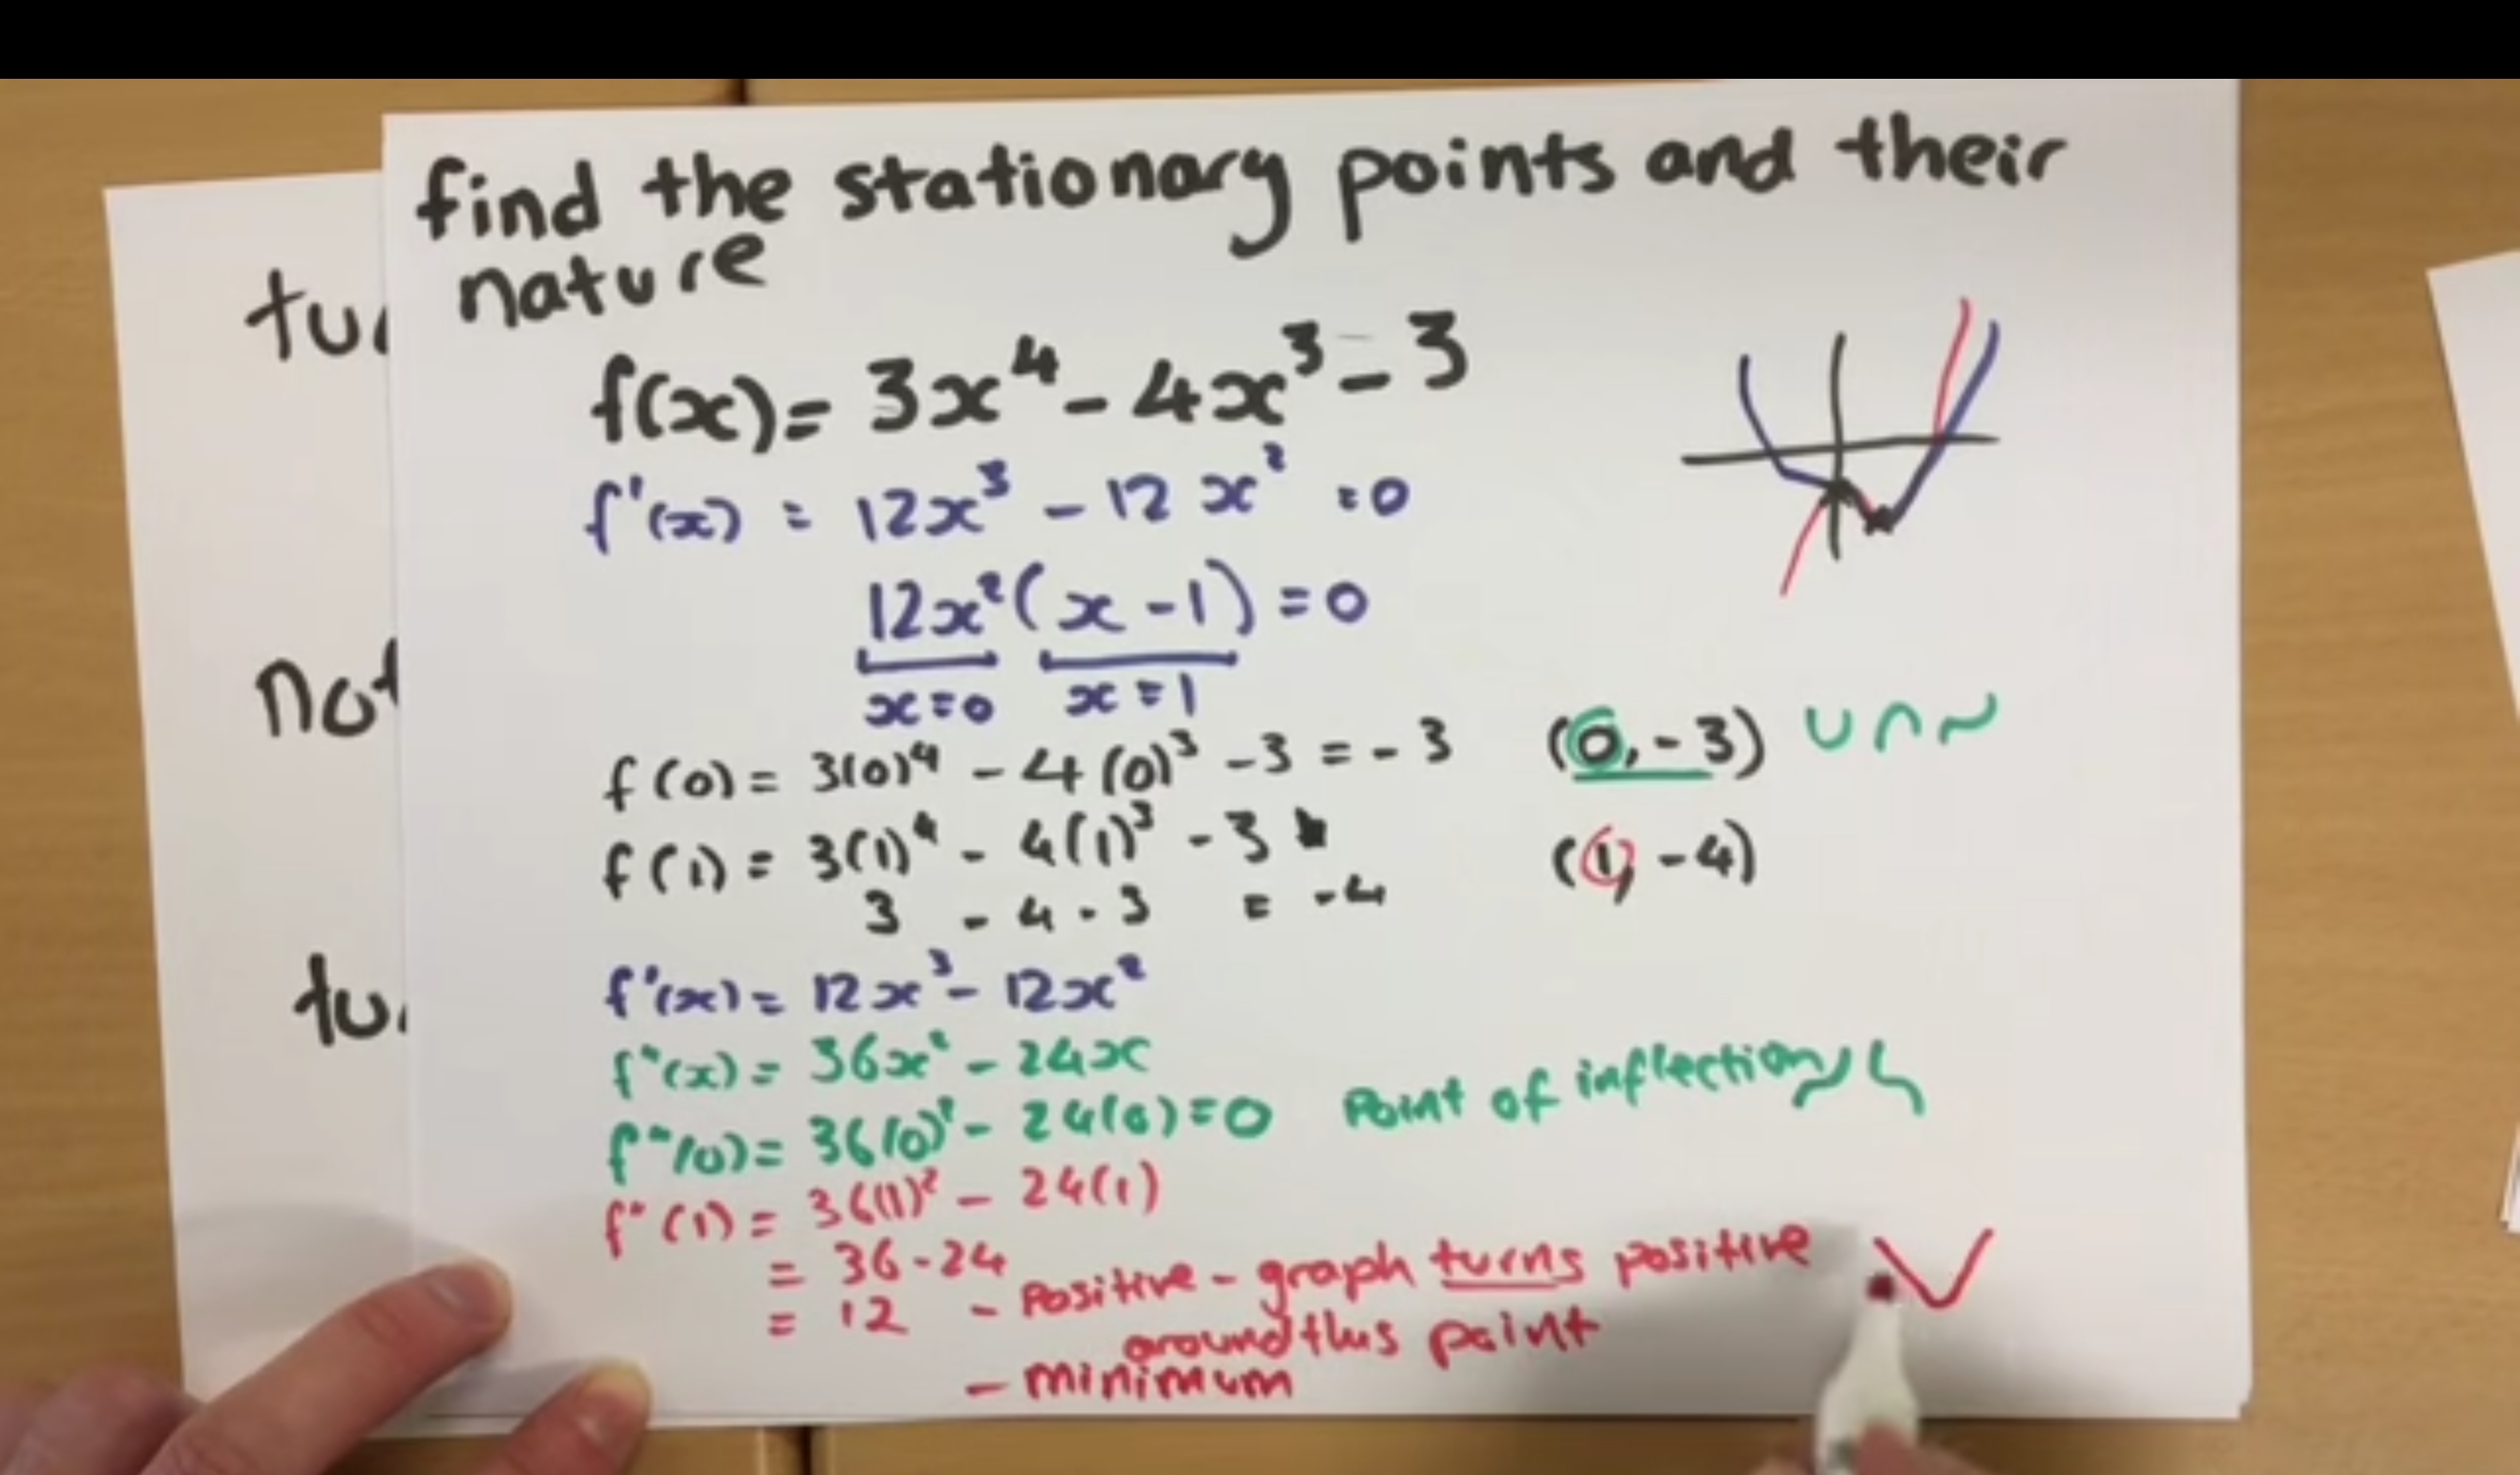 find the stationary points and their
nature
f(x) = 3x⁴ - 4x³ - 3
f'(x) = 12x³ - 12x² = 0
12x²(x - 1) = 0
x = 0 x = 1
f(0) = 3(0)⁴ - 4(0)³ - 3 = -3 (0, -3)
f(1) = 3(1)⁴ - 4(1)³ - 3 (1, -4)
3 - 4 - 3 = -4
f'(x) = 12x³ - 12x²
f"(x) = 36x² - 24x
f"(0) = 36(0)² - 24(0) = 0 Point of inflection
f"(1) = 36(1)² - 24(1)
= 36 - 24
= 12 - Positive - graph turns positive
around this point
- minimum